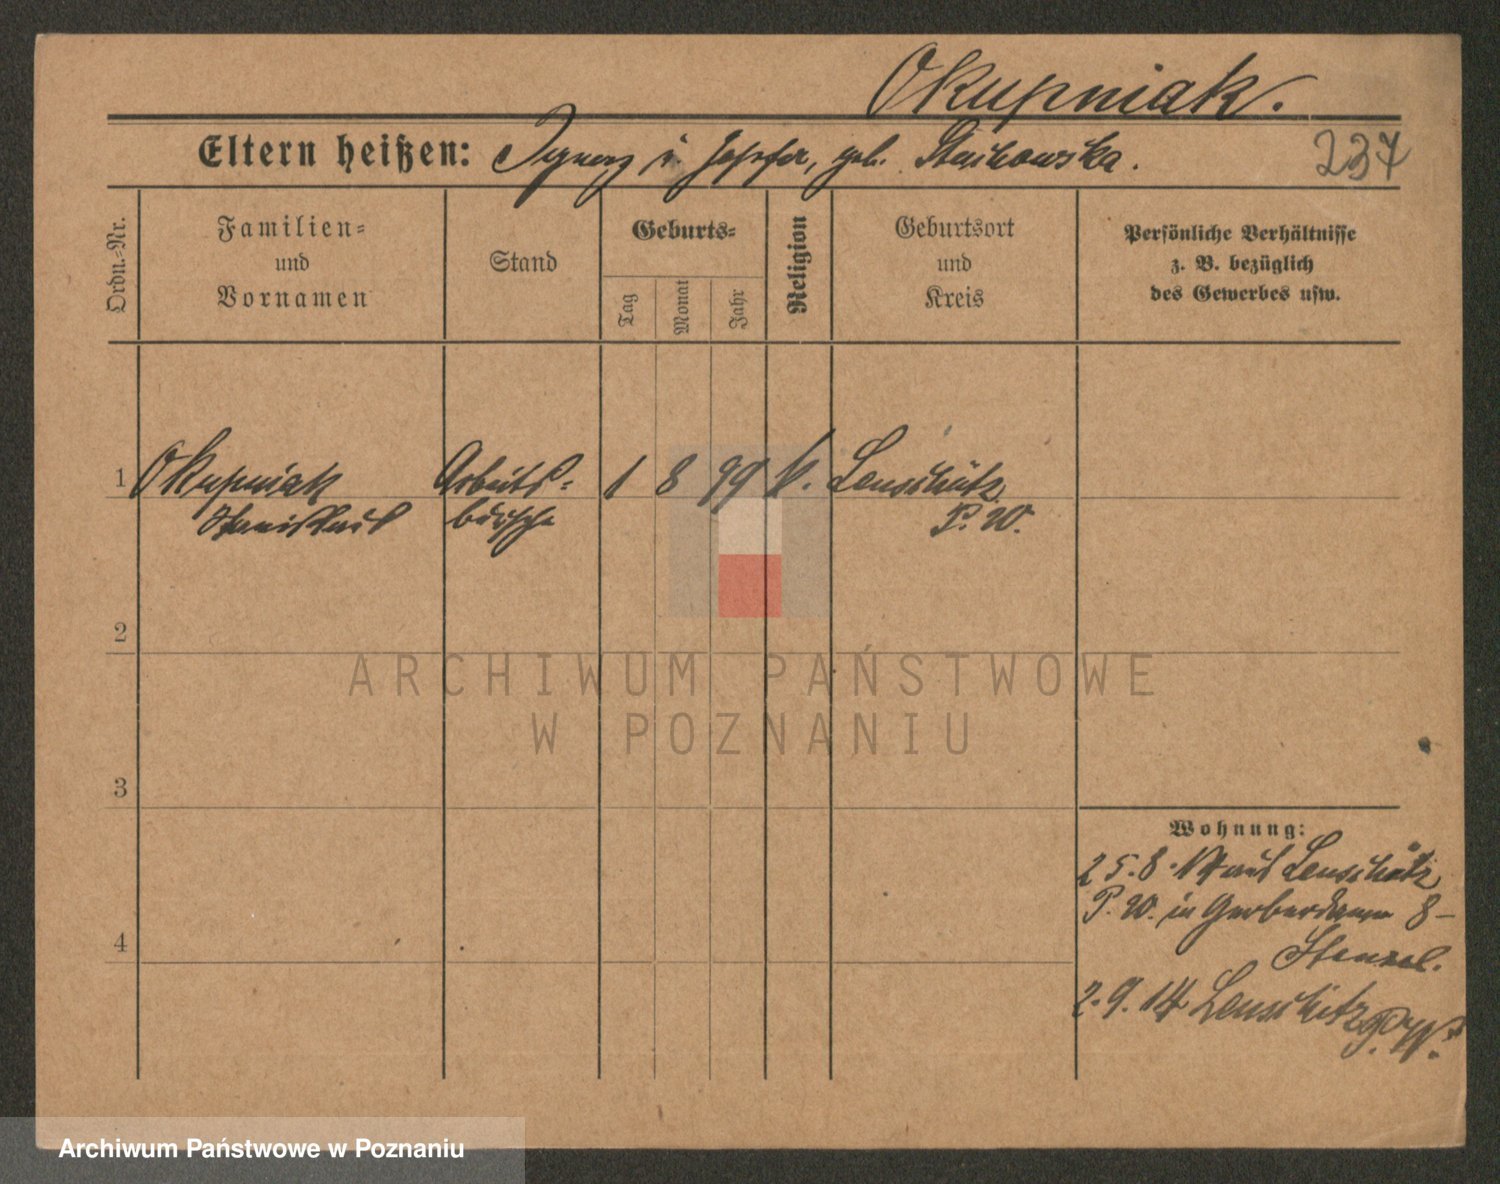 Okupniak.
Eltern heißen: Ignaz u. Josefa, geb. Stachowska.
237
Ordn.-Nr.
Familien-
und
Vornamen
Stand
Geburts-
Tag
Monat
Jahr
Religion
Geburtsort
und
Kreis
Persönliche Verhältnisse
z. B. bezüglich
des Gewerbes usw.
1 Okupniak Arbeits- 1 8 99 k. Lenschütz
Stanislaus bursche P. W.
2
ARCHIWUM PAŃSTWOWE
W POZNANIU
3
Wohnung:
25.8. 14 aus Lenschütz
P. W. in Gerberdamm 8 -
Stenzel.
4
2.9.14 Lenschütz P. W.
Archiwum Państwowe w Poznaniu